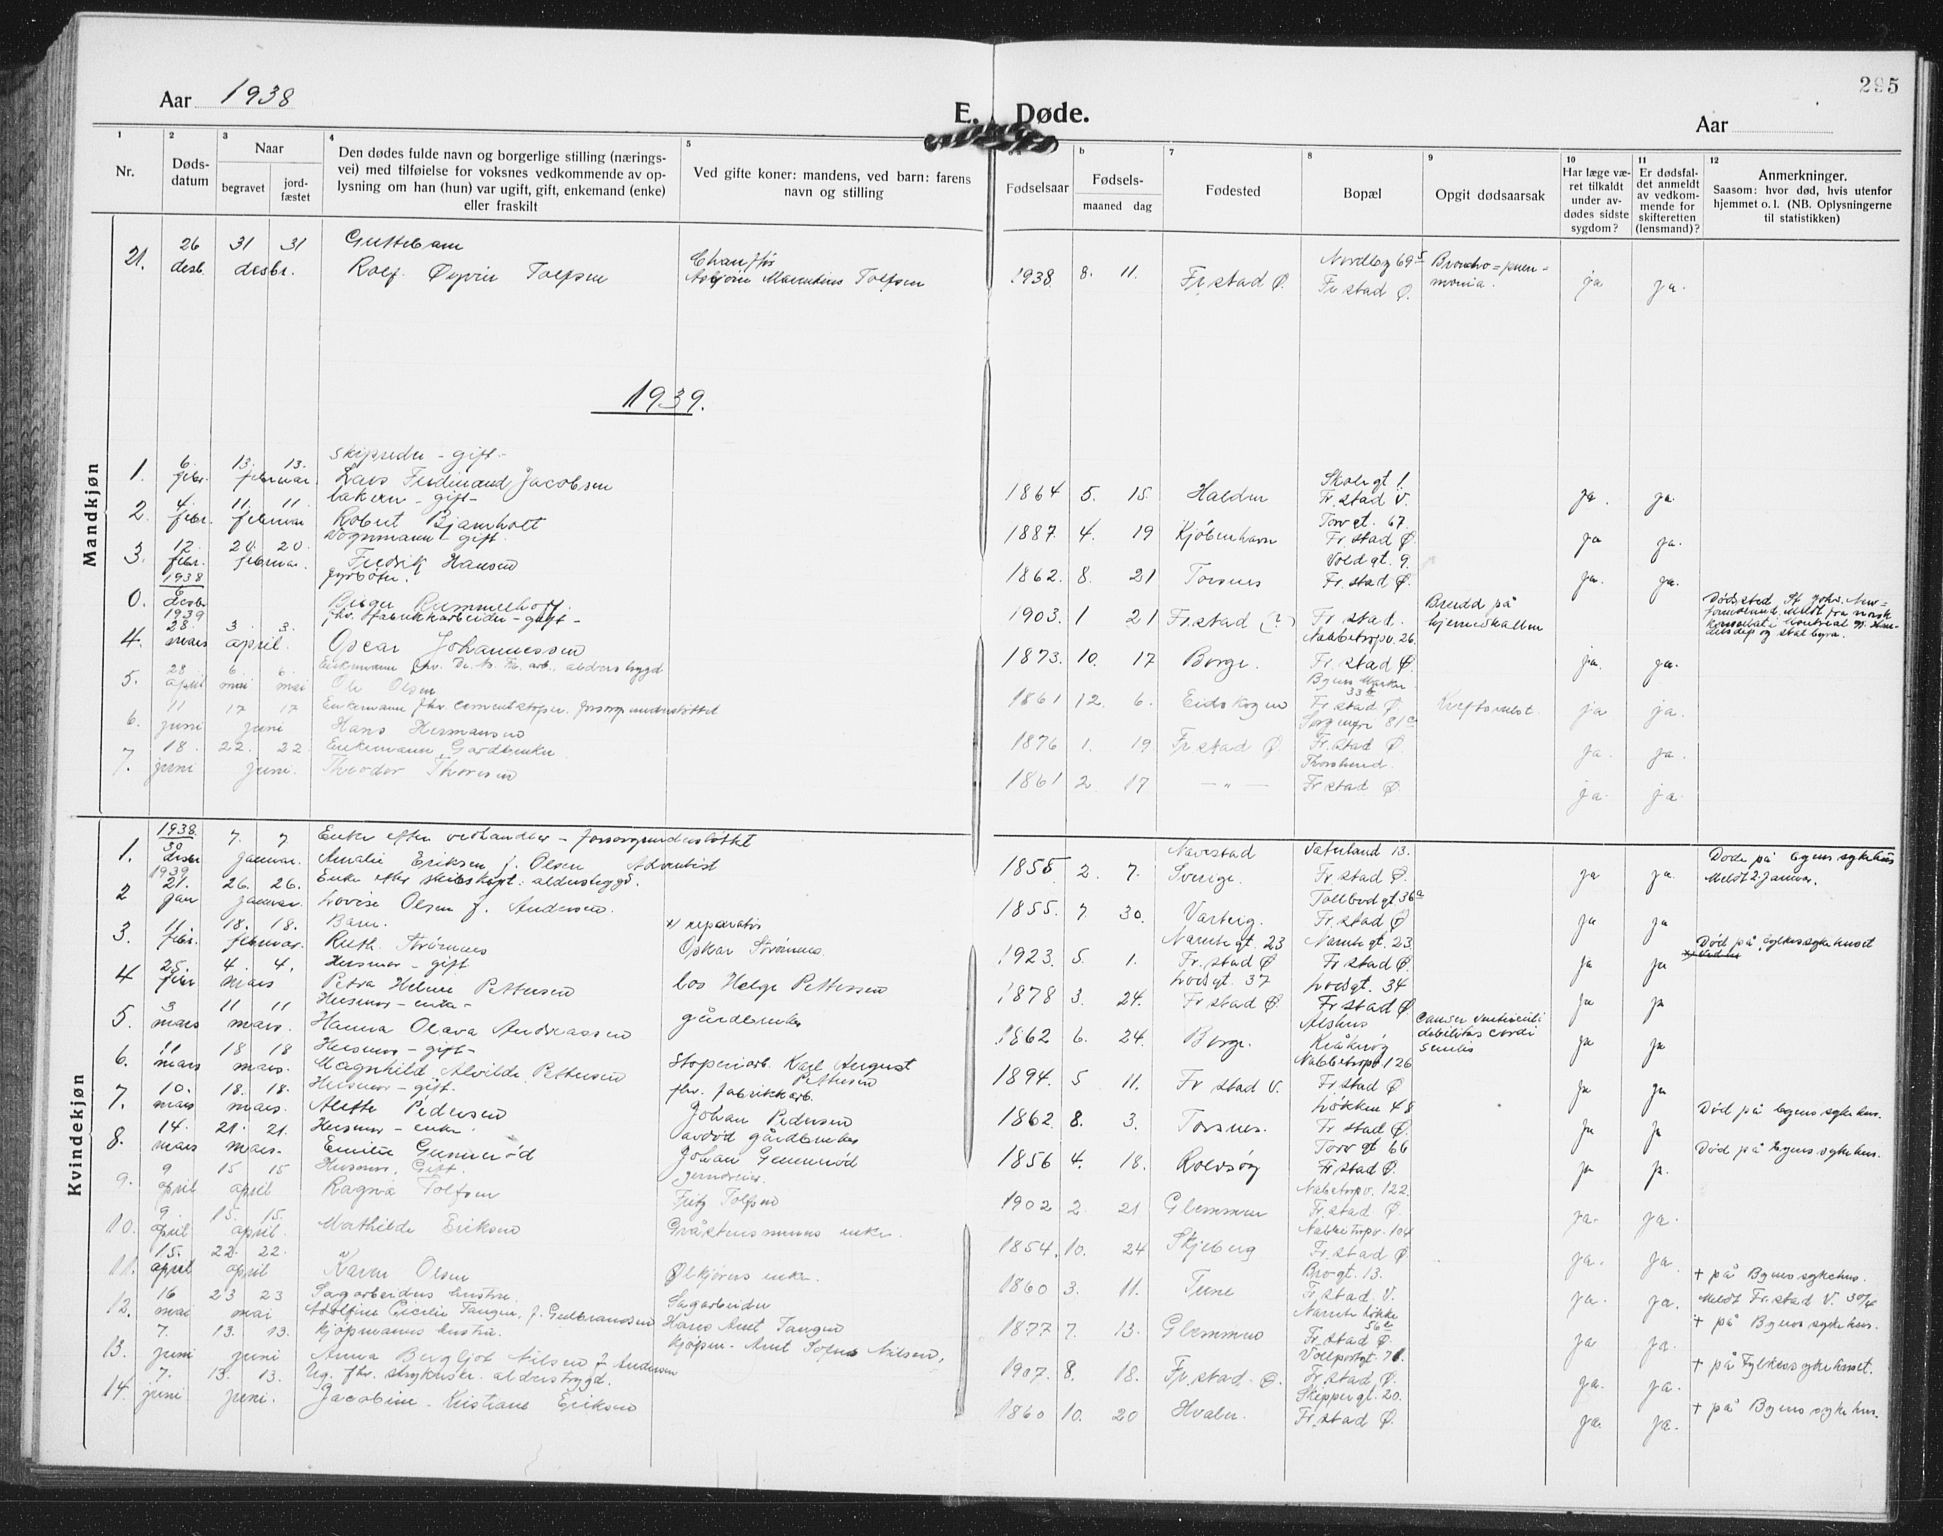 295
Aar 1938
E. Døde.
Aar
1 2 3 4 5 b 7 8 9 10 11 12
Nr.
Dødsdatum
Naar
begravet
jordfæstet
Den dødes fulde navn og borgerlige stilling (næringsvei) med tilføielse for voksnes vedkommende av oplysning om han (hun) var ugift, gift, enkemand (enke) eller fraskilt
Ved gifte koner: mandens, ved barn: farens navn og stilling
Fødselsaar
Fødsels-
maaned dag
Fødested
Bopæl
Opgit dødsaarsak
Har læge været tilkaldt under avdødes sidste sygdom?
Er dødsfaldet anmeldt av vedkommende for skifteretten (lensmand)?
Anmerkninger.
Saasom: hvor død, hvis utenfor hjemmet o. l. (NB. Oplysningerne til statistikken)
21. 26 desb. 31 31 desbr. Guttebarn Rolf Øyvin Tolfsen Chauffør Asbjørn Martinius Tolfsen 1938 8. 11. Fr.stad Ø. Fr.stad Ø. Broncho=pneumonia. ja ja.
1939.
Mandkjøn
1. 6. febr. 13. 13. februar skipsreder - gift - Lars Ferdinand Jacobsen 1864 5. 15 Halden Skolegt 1. Fr.stad V. ja. ja.
2. 4. febr. 11. 11. februar bakerm - gift - Robert Bjarnholt 1887. 4. 19 Kjøbenhavn Torvgt. 67. Fr.stad Ø. ja ja.
3. 12. febr. 20. 20. februar. Vognmann - gift. Fredrik Hansen 1862. 8. 21 Torsnes Voldgt. 9. Fr.stad Ø. ja. ja.
0. 1938 6 desbr fyrbøter. Birger Rummelhoff. 1903. 1 21 Fr.stad (?) Fr.stad. Brudd på hjerneskallen Dødssted St Johs. Newfoundland. Meldt fra norsk konsulat i Montreal
4. 1939 28. mars 3. 3. april. fhv. fabrikkarbeider - gift - Oscar Johannessen 1873. 10. 17 Borge. Nabbetorpv. 26. Fr.stad Ø. ja. ja.
5. 28 april 6. 6. mai mai Enkemann fhv. alderstrygd Ole Olsen 1861 12. 6. Eidskogen Byens Marker 33 Fr.stad Ø. ja ja.
6. 11 juni 17 17 juni Enkemann fhv. cementstøper. forsorgsunderstøttet Hans Hermansen 1876 1. 19 Fr.stad Ø Sorgenfri 81 Fr.stad Ø. ja. ja.
7. 18. juni 22. 22 juni. Enkemann, Gårdbruker Theodor Thoresen 1861 2 17 — " — Fr.stad Ø. ja. ja
Kvindekjøn
1. 1938 30 desbr 7. 7 januar. Enke efter vedhandler - forsorgsunderstøttet Amalie Eriksen f. Olsen Adventist 1855 2. 7. Navestad Sverige. Vaterland 13. Fr.stad Ø. ja ja. Døde på byens sykehus Meldt 2. januar.
2 1939 21. jan 26. 26. januar. Enke efter skibskapt. alderstrygd. Lovise Olsen f. Andersen. 1855. 7. 30. Varteig. Tollbodgt 36a Fr.stad Ø ja ja
3. 11 febr. 18. 18. februar. Barn. Ruth Strømnes x) reparatør Oskar Strømnes 1923 5. 1. Narntegt. 23 Fr.stad Ø Narntegt. 23 Fr.stad Ø. ja ja Død på fylkessykehuset
4 25. febr 4. 4. mars Husmor - gift Petra Helene Pettersen los Helge Pettersen 1878 3. 24. Lodsgt. 37 Fr.stad Ø. Lodsgt. 34 Fr.stad Ø. ja ja
5. 3 mars 11 11 mars. Husmor - enke - Hanna Olava Andreassen gårdbruker 1862 6. 24. Borge. Kråkerøy Cancer ventriculi debilitas cordis senilis ja ja
6. 11 mars 18 18 mars. Husmor - gift - Magnhild Alvilde Pettersen Støperiarb. Karl August Pettersen 1894. 5 11. Fr.stad V. Nabbetorpv 126 Fr.stad Ø ja ja
7. 10. mars 18. 18. mars. Husmor - gift. Alette Pedersen fhv. fabrikkarb. Johan Pedersen 1862. 8. 3. Torsnes. Løkken 48 Fr.stad Ø. ja ja Død på byens sykehus.
8. 14. mars 21. 21. mars. Husmor - enke. Emilie Gunnerød avdød gårdbruker Johan Gunnerød 1856 4. 18. Rolvsøy Torvgt 66 Fr.stad Ø. ja ja. Død på byens sykehus.
9. 9 april 15 15 april Husmor, Gift. Ragna Tolfsen Jerndreier. Fritz Tolfsen 1902 2. 21 Glemmen Nabetorpv. 122. Fr.stad Ø. ja. ja.
10. 9. april 15. 15. april. Mathilde Eriksen Gråstensminers enke. 1854. 10. 24 Skjeberg Nabbetorpv. 104 Fr.stad Ø ja. ja.
11. 15. april 22. 22. april Karen Olsen Ølkjørers enke. 1860 3. 11. Tune Brogt. 13. Fr.stad. V. ja. ja. + på Byens sykehus. Meldt Fr.stad V. 30/4
12. 16 mai 23 23 mai Sagarbeiders hustru. Adolfine Cecilie Tangen, f. Gulbrandsen Sagarbeider Hans Anet Tangen 1877 7. 13. Glemmen Narnte løkke 56 Fr.stad Ø. ja ja. + på Byens sykehus.
13. 7. juni 13. 13. juni Kjøpmanns hustru. Anna Bergljot Nilsen f. Andersen Kjøpm. Arnt Nilsen. 1907. 8. 18. Fr.stad. Ø. Vollportgt. 71. Fr.stad Ø. ja. ja. + på Fylkessykehuset.
14. 7. juni 13. 13. juni. Ug. fhv. strykerske. alderstrygd. Jacobine Kristiane Eriksen 1860 10. 20 Hvaler. Skippergt. 20. Fr.stad Ø. ja. ja. + på Byens sykehus.